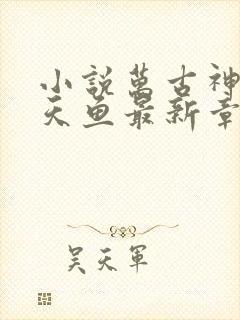 小說萬古神
天魚最新章
吳天軍